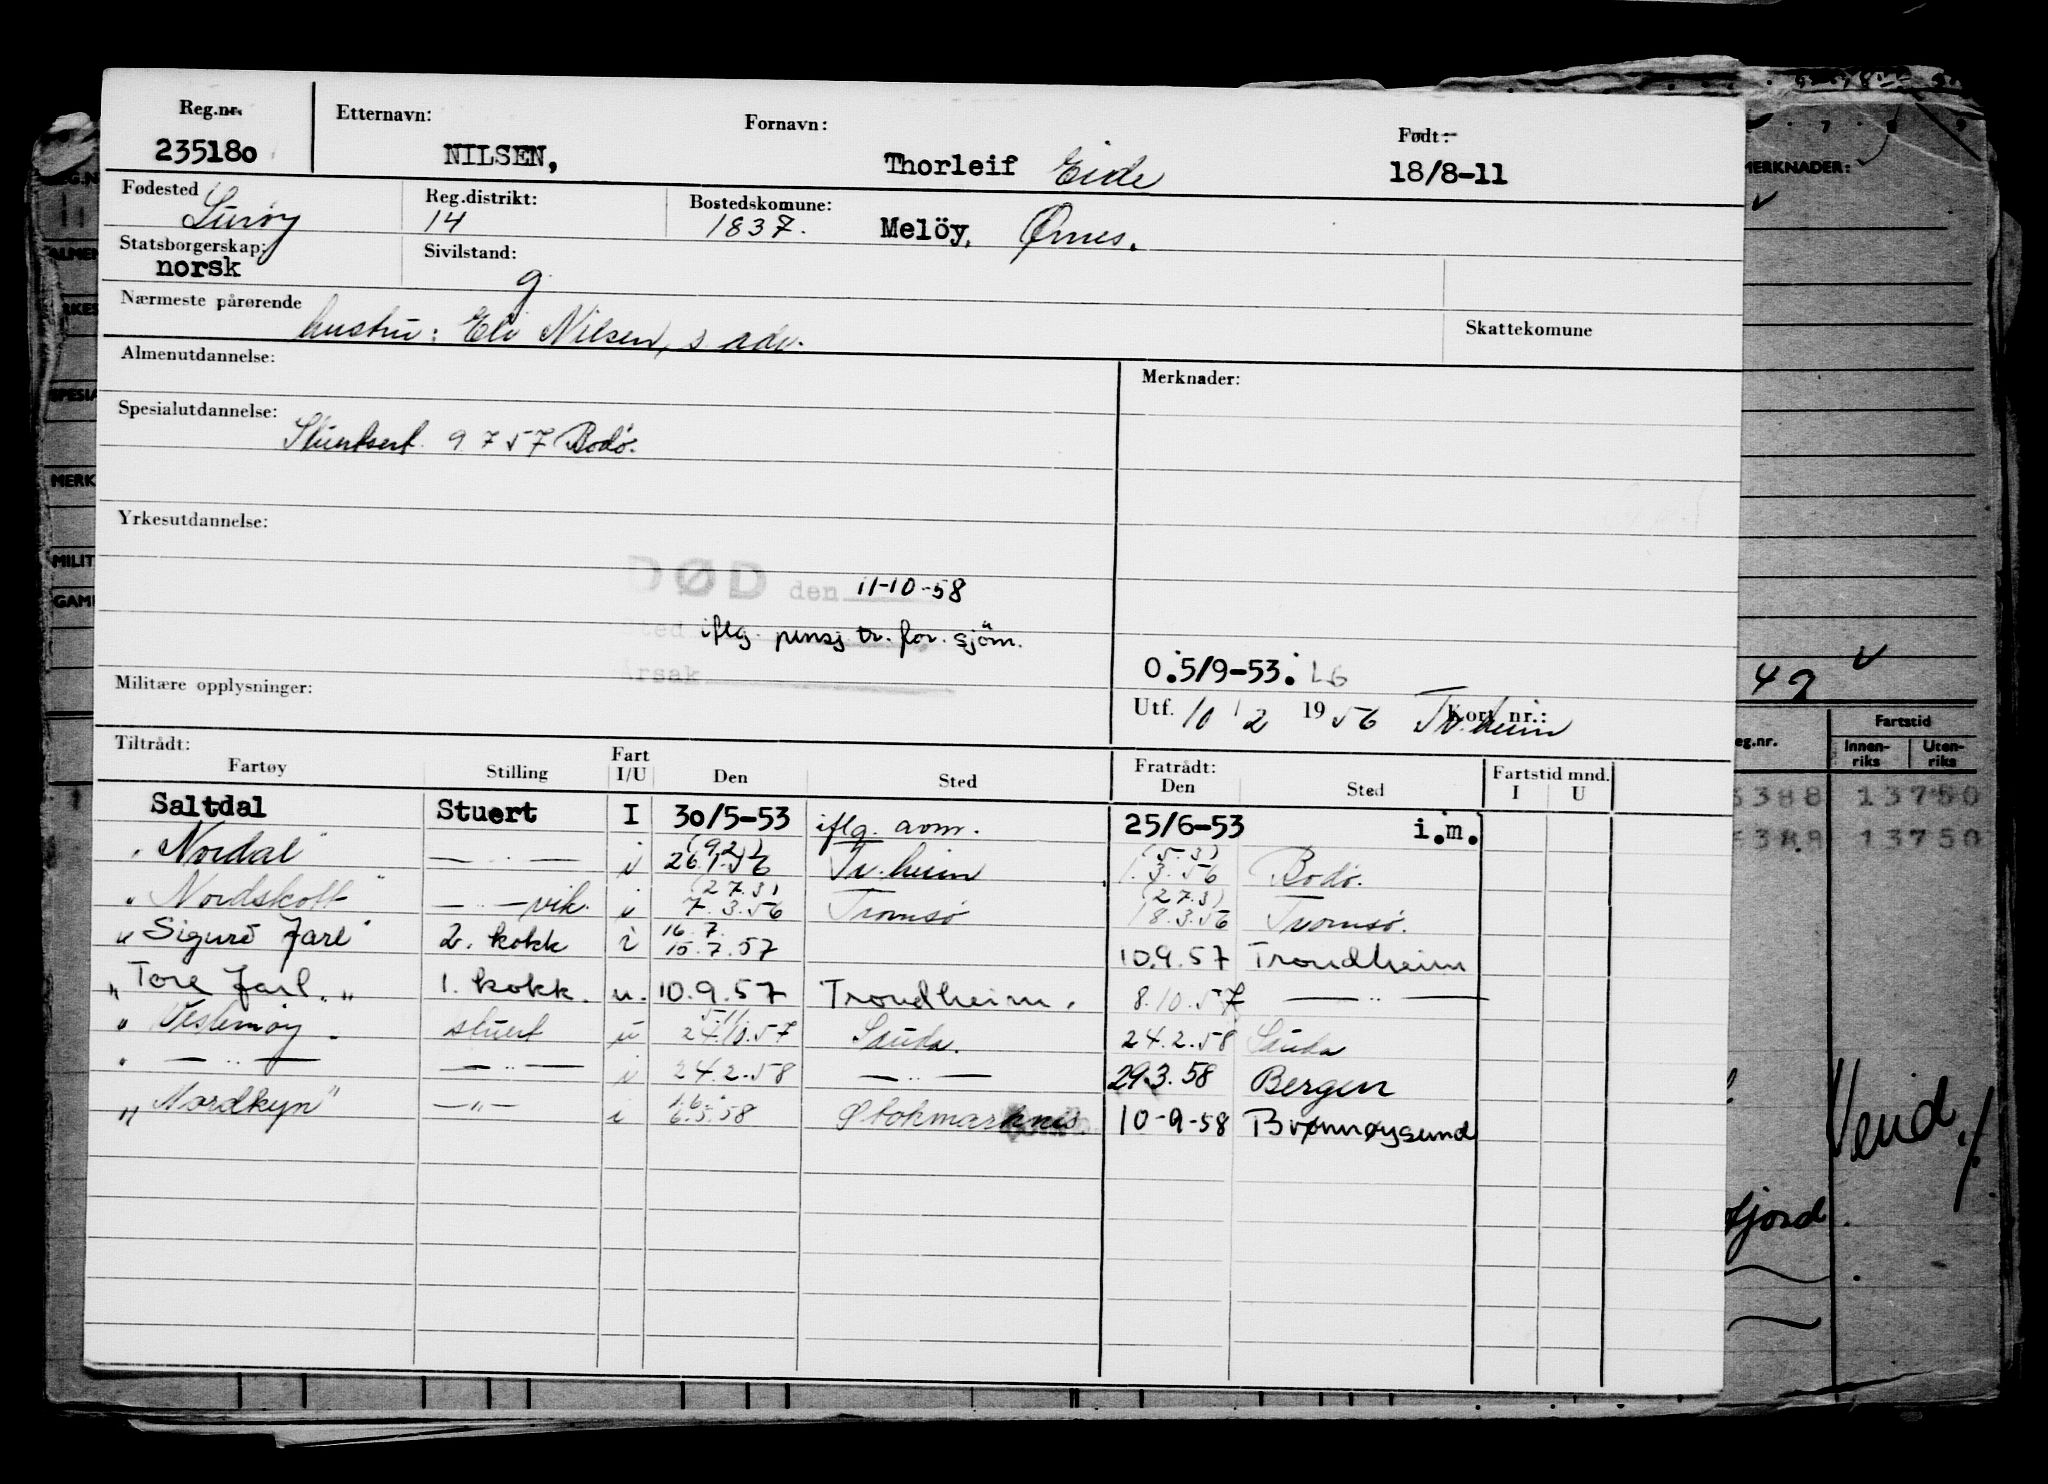 Reg.nr. Etternavn: Fornavn: Født:
235180 NILSEN, Thorleif Eide 18/8-11
Fødested Lurøy Reg.distrikt: 14 Bostedskomune: 1837. Melöy, Ørnes.
Statsborgerskap: norsk Sivilstand: g
Nærmeste pårørende hustru: Eli Nilsen, s. adr. Skattekomune
Almenutdannelse: Merknader:
Spesialutdannelse: Stuertsert. 9 7 57 Bodö.
Yrkesutdannelse:
DØD den 11-10-58
sted iflg. pensj. tr. for. sjöm.
Årsak
O.5/9-53. L6
Militære opplysninger: Utf. 10/2 1956 Kort nr.: Tr.heim
Tiltrådt: Fratrådt:
Fartøy Stilling Fart I/U Den Sted Den Sted Fartstid mnd. I U
Saltdal Stuert I 30/5-53 iflg. avm. 25/6-53 i.m.
(9.2) (5.3)
"Nordal" — " — i 26.1.56 Tr.heim 1.3.56 Bodö.
(27.3) (27.3)
"Nordskott" — " — vik. i 7.3.56 Tromsø 18.3.56 Tromsø.
16.7.
"Sigurd Jarl" 2. kokk i 15.7.57 10.9.57 Trondheim
"Tore Jarl." 1. kokk. u. 10.9.57 Trondheim. 8.10.57 — " —
" Vestemøy. stuert u 24.10.57 Sauda. 24.2.58 Sauda
" — " — — " — i 24.2.58 — " — 29.3.58 Bergen
"Nordkyn" — " — i 6.5.58 Stokmarknes 10-9-58 Brønnøysund
MERKNADER:
42
Fartstid
eg.nr. Innen-riks Uten-riks
388 13750
388 13750
Vend./.
fjord.